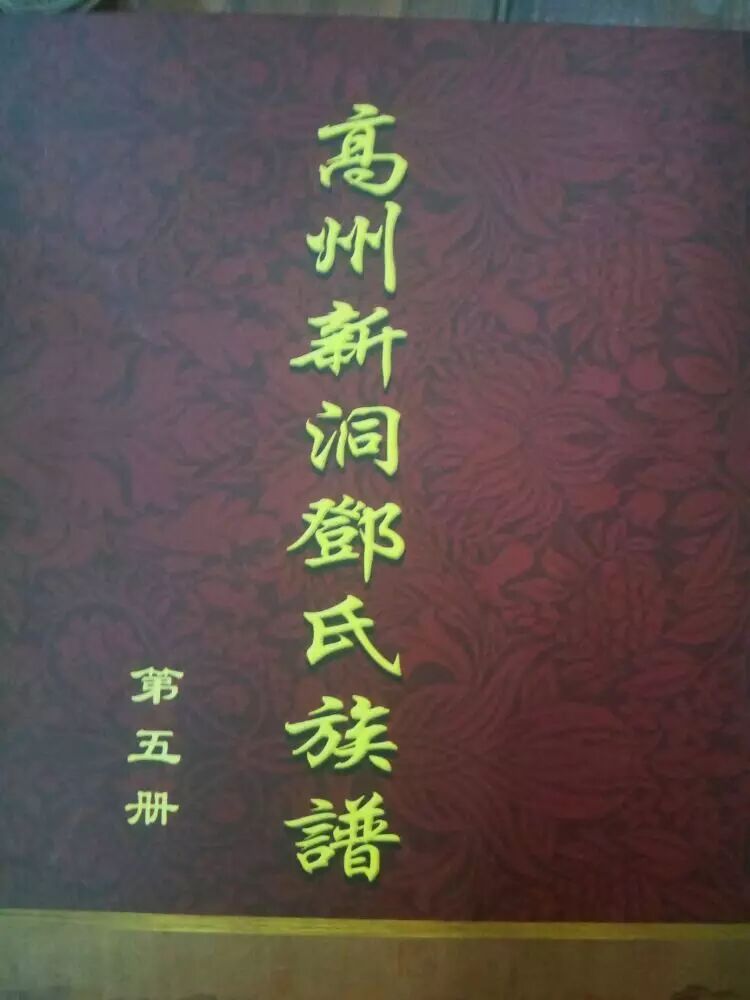 高州新洞鄧氏族譜
第五册